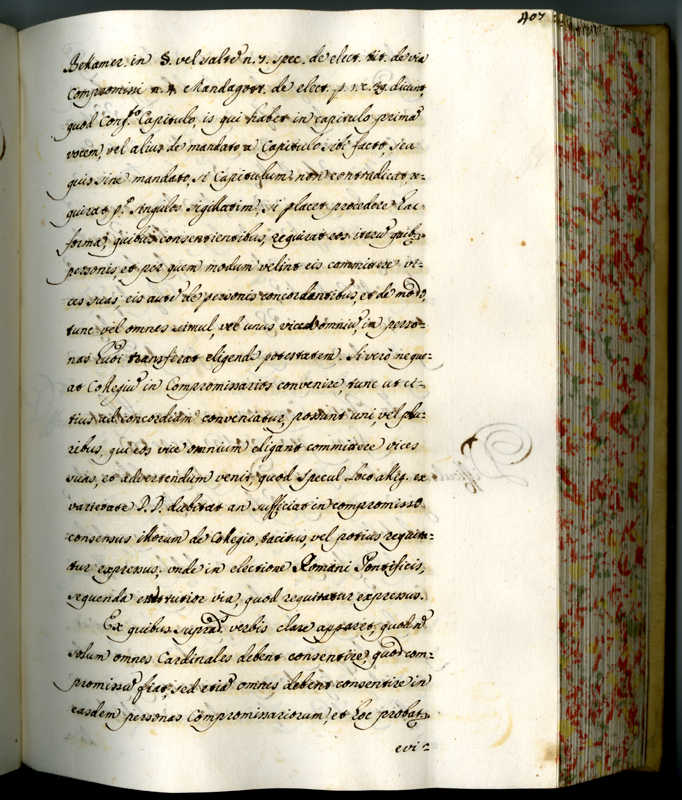 407
Bekamer in S. vel saltē n. 7. spec. de elect. tit. de via
Compromissi n. 4. Mandagott. de elect. p. 1. c. 29. dicunt
quod Cong.to Capitulo, is qui habet in capitulo primā
vocem, vel alius de mandato a Capitulo sibi facto, seu
quis sine mandato, si Capitulum non contradicat re=
quirat p.o singulos sigillatim, si placet procedere hac
forma, quibus consentientibus, requirat eos iterū quib.
personis, et per quem modum velint eis committere vi=
ces suas eis autē de personis concordantibus, et de modo,
tunc vel omnes simul, vel unus vice omniū, in perso=
nas transferat eligendi potestatem. Si verò nequ=
at Collegiū in Compromissarios convenire, tunc ut ci=
tius ad concordiam conveniatur, possunt uni, vel plu=
ribus, qui eos vice omnium eligant committere vices
suas, et advertendum venit, quod Specul. loco alleg. ex
varietate D.D. dubitat an sufficiat in compromisso
consensus illorum de Collegio, tacitus, vel potius requira=
tur expressus, onde in electione Romani Pontificis,
sequenda est tutior via, quod requiratur expressus.
Ex quibus suprad. verbis clare apparet, quod nō
solum omnes Cardinales debent consentire, quod com=
promissū fiat, sed etiā omnes debent consentire in
easdem personas Compromissariorum, et hoc probat.
evi=